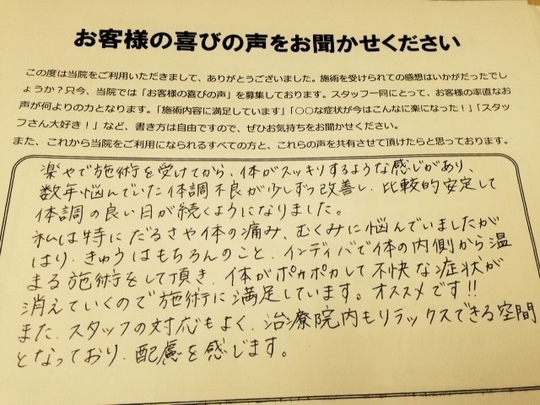 お客様の喜びの声をお聞かせください
この度は当院をご利用いただきまして、ありがとうございました。施術を受けられての感想はいかがだったでし
ょうか？只今、当院では「お客様の喜びの声」を募集しております。スタッフ一同にとって、お客様の率直なお
声が何よりの力となります。「施術内容に満足しています」「〇〇な症状が今はこんなに楽になった！」「スタッ
フさん大好き！」など、書き方は自由ですので、ぜひお気持ちをお聞かせください。
また、これから当院をご利用になられるすべての方と、これらの声を共有させて頂けたらと思っております。
楽やで施術を受けてから、体がスッキリするような感じがあり、
数年悩んでいた体調不良が少しずつ改善し、比較的安定して
体調の良い日が続くようになりました。
私は特にだるさや体の痛み、むくみに悩んでいましたが
はり、きゅうはもちろんのこと、インディバで体の内側から温
まる施術をして頂き、体がポカポカして不快な症状が
消えていくので施術に満足しています。オススメです!!
また、スタッフの対応もよく、治療院内もリラックスできる空間
となっており、配慮を感じます。